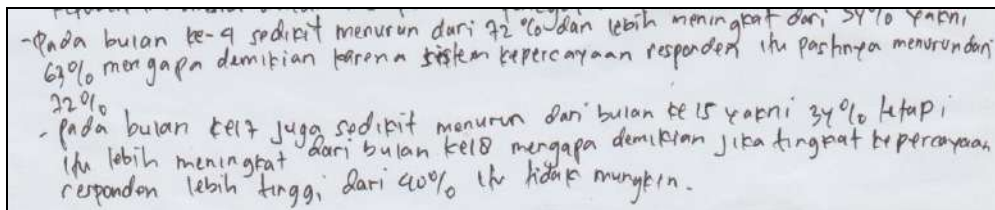 -Pada bulan ke-4 sedikit menurun dari 72% dan lebih meningkat dari 34% yakni
63% mengapa demikian karena sistem kepercayaan responden itu pastinya menurun dari
72%
- pada bulan ke17 juga sedikit menurun dari bulan ke 15 yakni 34% tetapi
itu lebih meningkat dari bulan ke18 mengapa demikian jika tingkat kepercayaan
responden lebih tinggi dari 40% itu tidak mungkin.